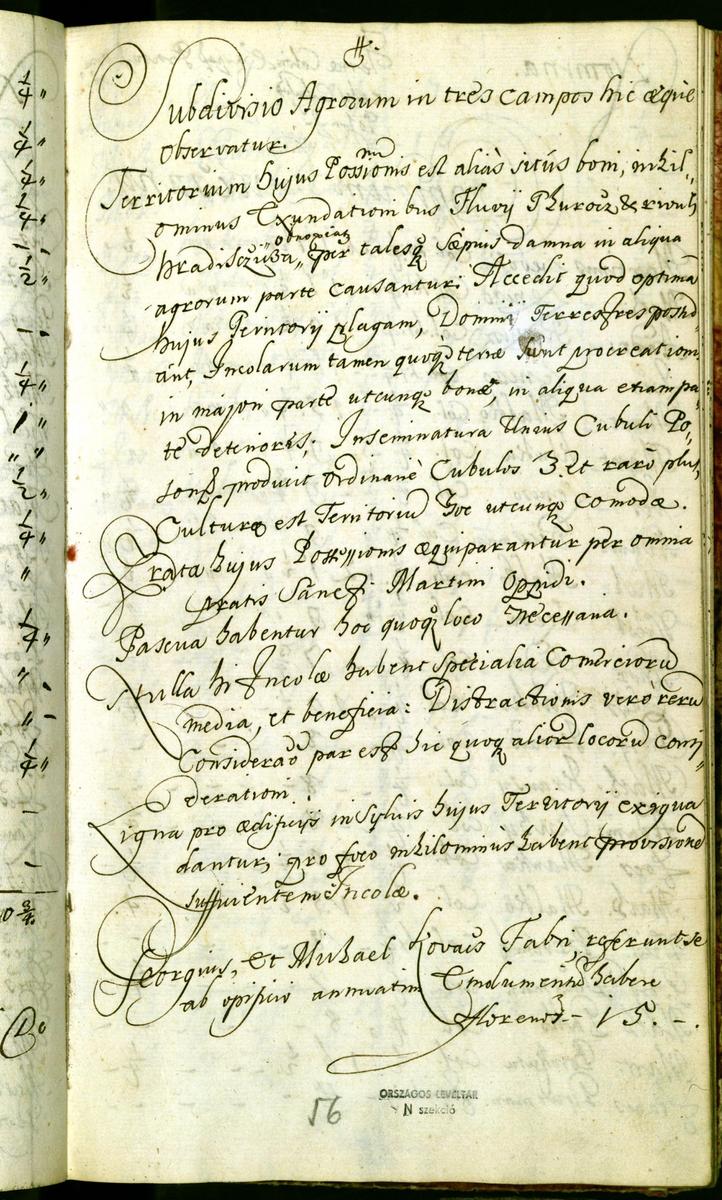 #.
Subdivisio Agrorum in tres campos hic æque
observatur.
Territorium hujus Possionis est aliàs sitûs boni, nihil,,
ominus Exundationibus Fluvij Thurocz & rivuli
obnoxiat
Hradisczuba, per talesq sæpius damna in aliqua
agrorum parte causantur; Accedit quod optimã
hujus Territorij plagam, Dominij Terrestres possid
ant, Incolarum tamen quoq terræ sunt procreationi
in majori parte utcunq bonæ, in aliqua etiam pa
te deteriores; Inseminatura Unius Cubuli Po,,
son producit ordinariè Cubulos 3. Et raro plus,
Culturæ est Territoriũ hoc utcunq comodæ.
Prata hujus Possessionis æquiparantur per omnia
pratis Sancti Martini Oppidi.
Pascua habentur hoc quoq loco Necessaria.
Nulla hi Incolæ habent specialia Comerciorũ
media, et beneficia: Distractionis verò rerũ
Consideraõ par est hic quoq alior locorũ consi
derationi.
Ligna pro ædificijs in Sylvis hujus Territorij exigua
dantur; pro foco nihilominus habent provisionẽ
sufficientem Incolæ.
Georgius, et Michael Kovacs Fabri referunt se
ab opificio annuatim Emolumentũ habere
florenos - 15. -
56
ORSZÁGOS LEVÉLTÁR
N szekció
1/4 "
1/4 "
1/4 "
1/4 "
1/2 "
1/4 "
1 "
" "
1/2 "
1/4 "
"
1/4 "
1/4 "
0 3/4.